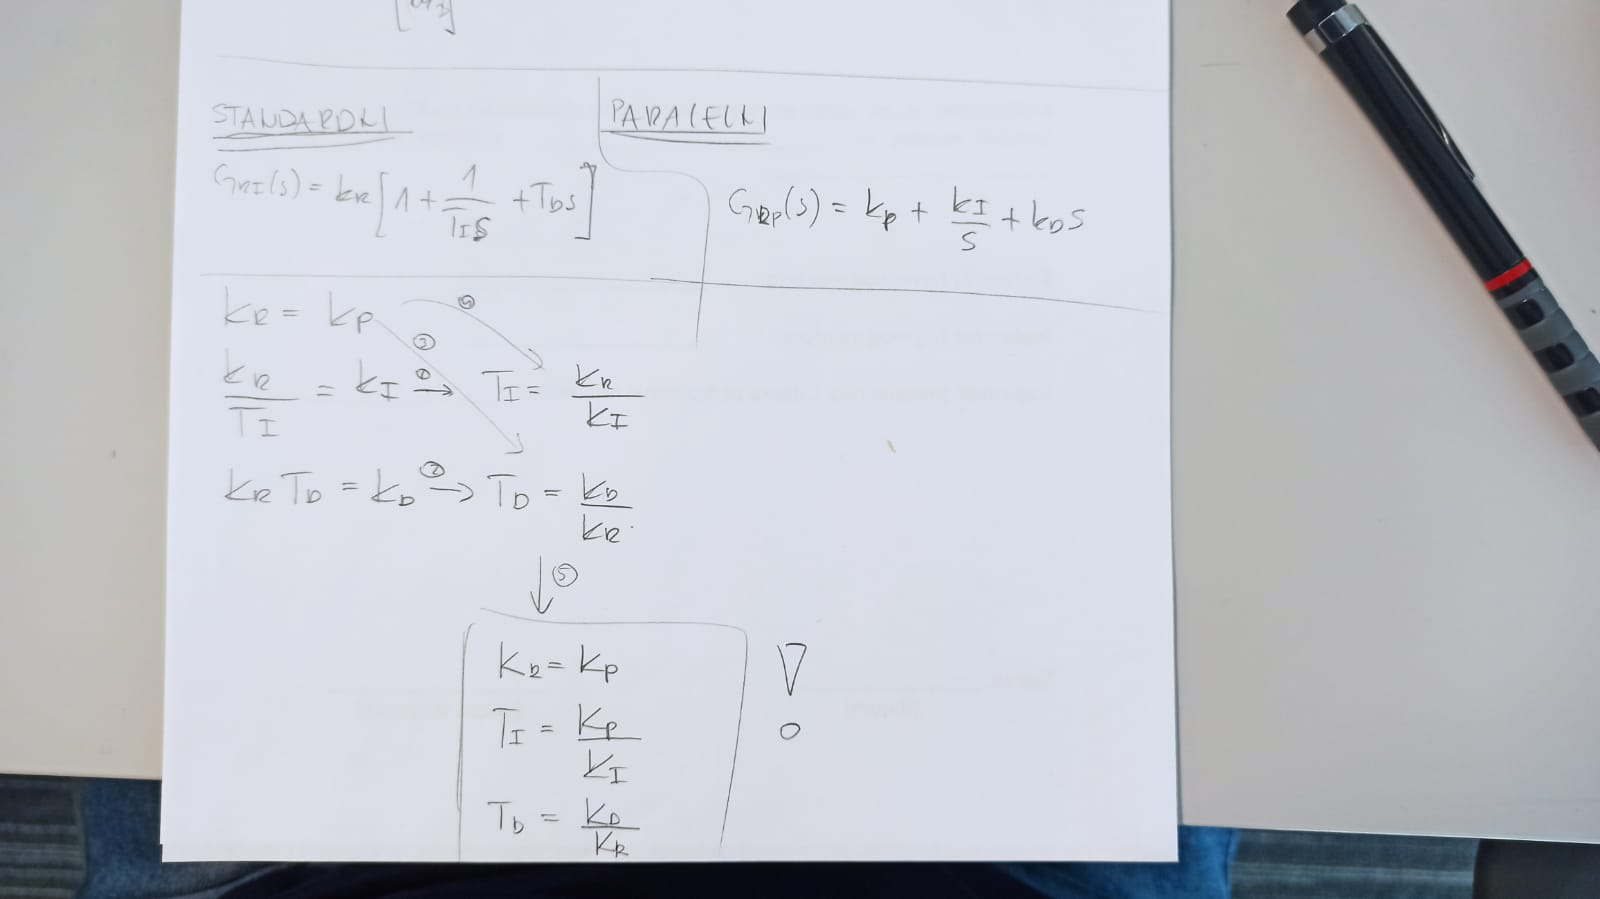 STANDARDNI
G_RI(s) = k_R [ 1 + 1/(T_I s) + T_D s ]
PARALELNI
G_RP(s) = k_p + k_I/s + k_D s
k_R = k_P ③ ④
k_R/T_I = k_I ①→ T_I = k_R/k_I
k_R T_D = k_D ②→ T_D = k_D/k_R
↓ ⑤
K_R = k_P !
T_I = K_P/K_I
T_D = K_D/K_R